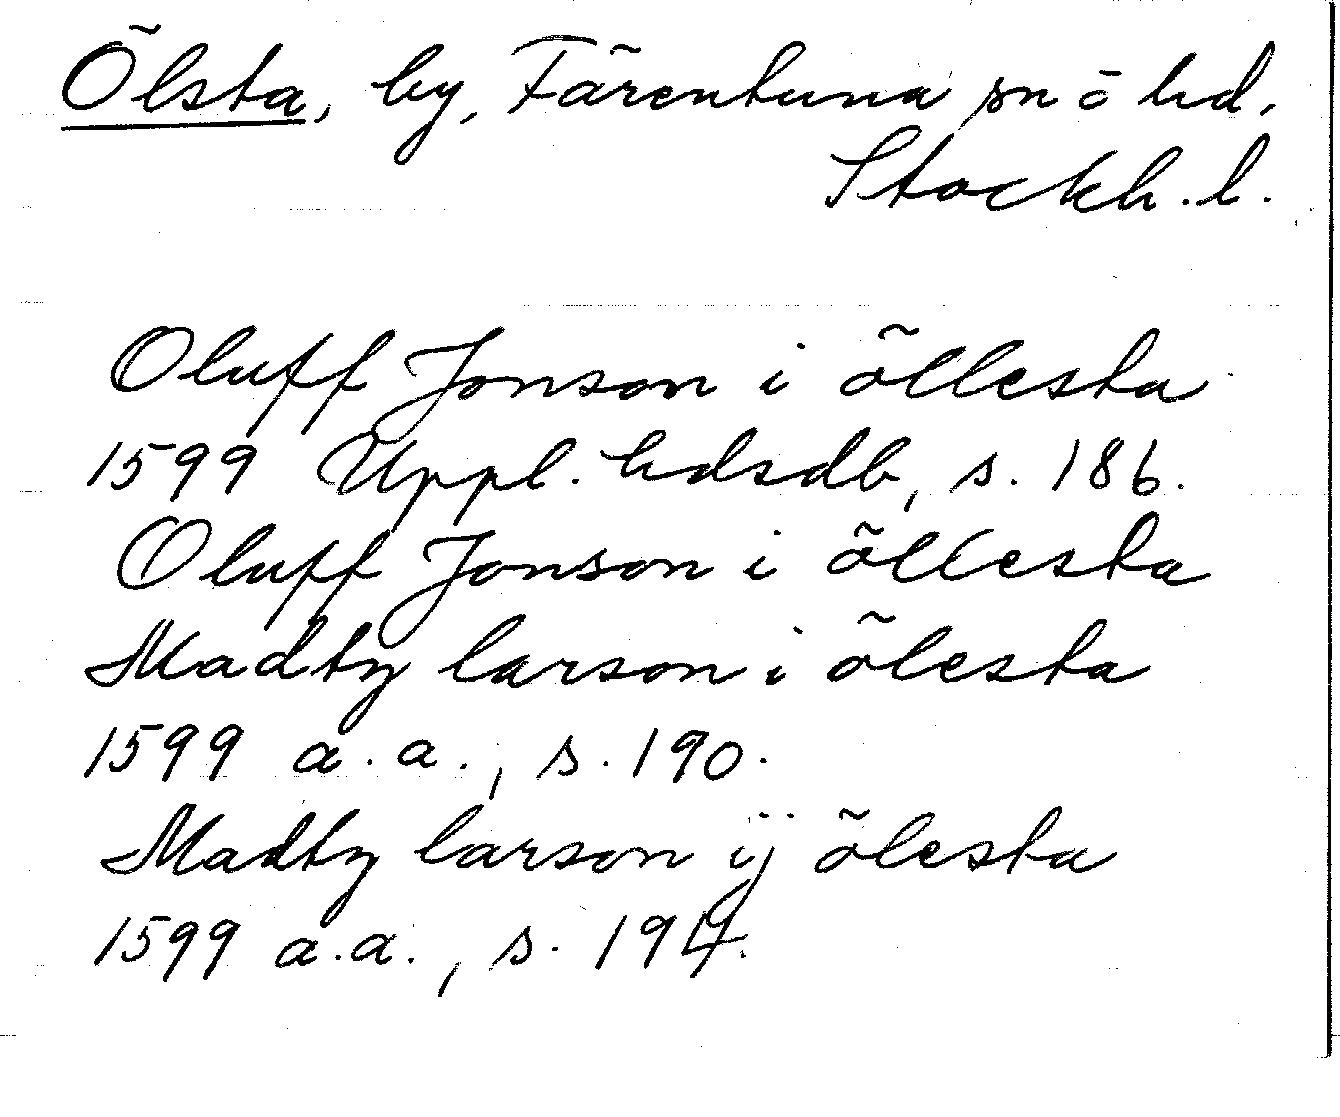 Ölsta, by, Färentuna sn o hd,
Stockh. l.
Oluff Jonson i öllesta
1599 Uppl. hdsdb, s. 186.
Oluff Jonson i öllesta
Madtz larson i ölesta
1599 a.a., s. 190.
Madtz larson ij ölesta
1599 a.a., s. 194.